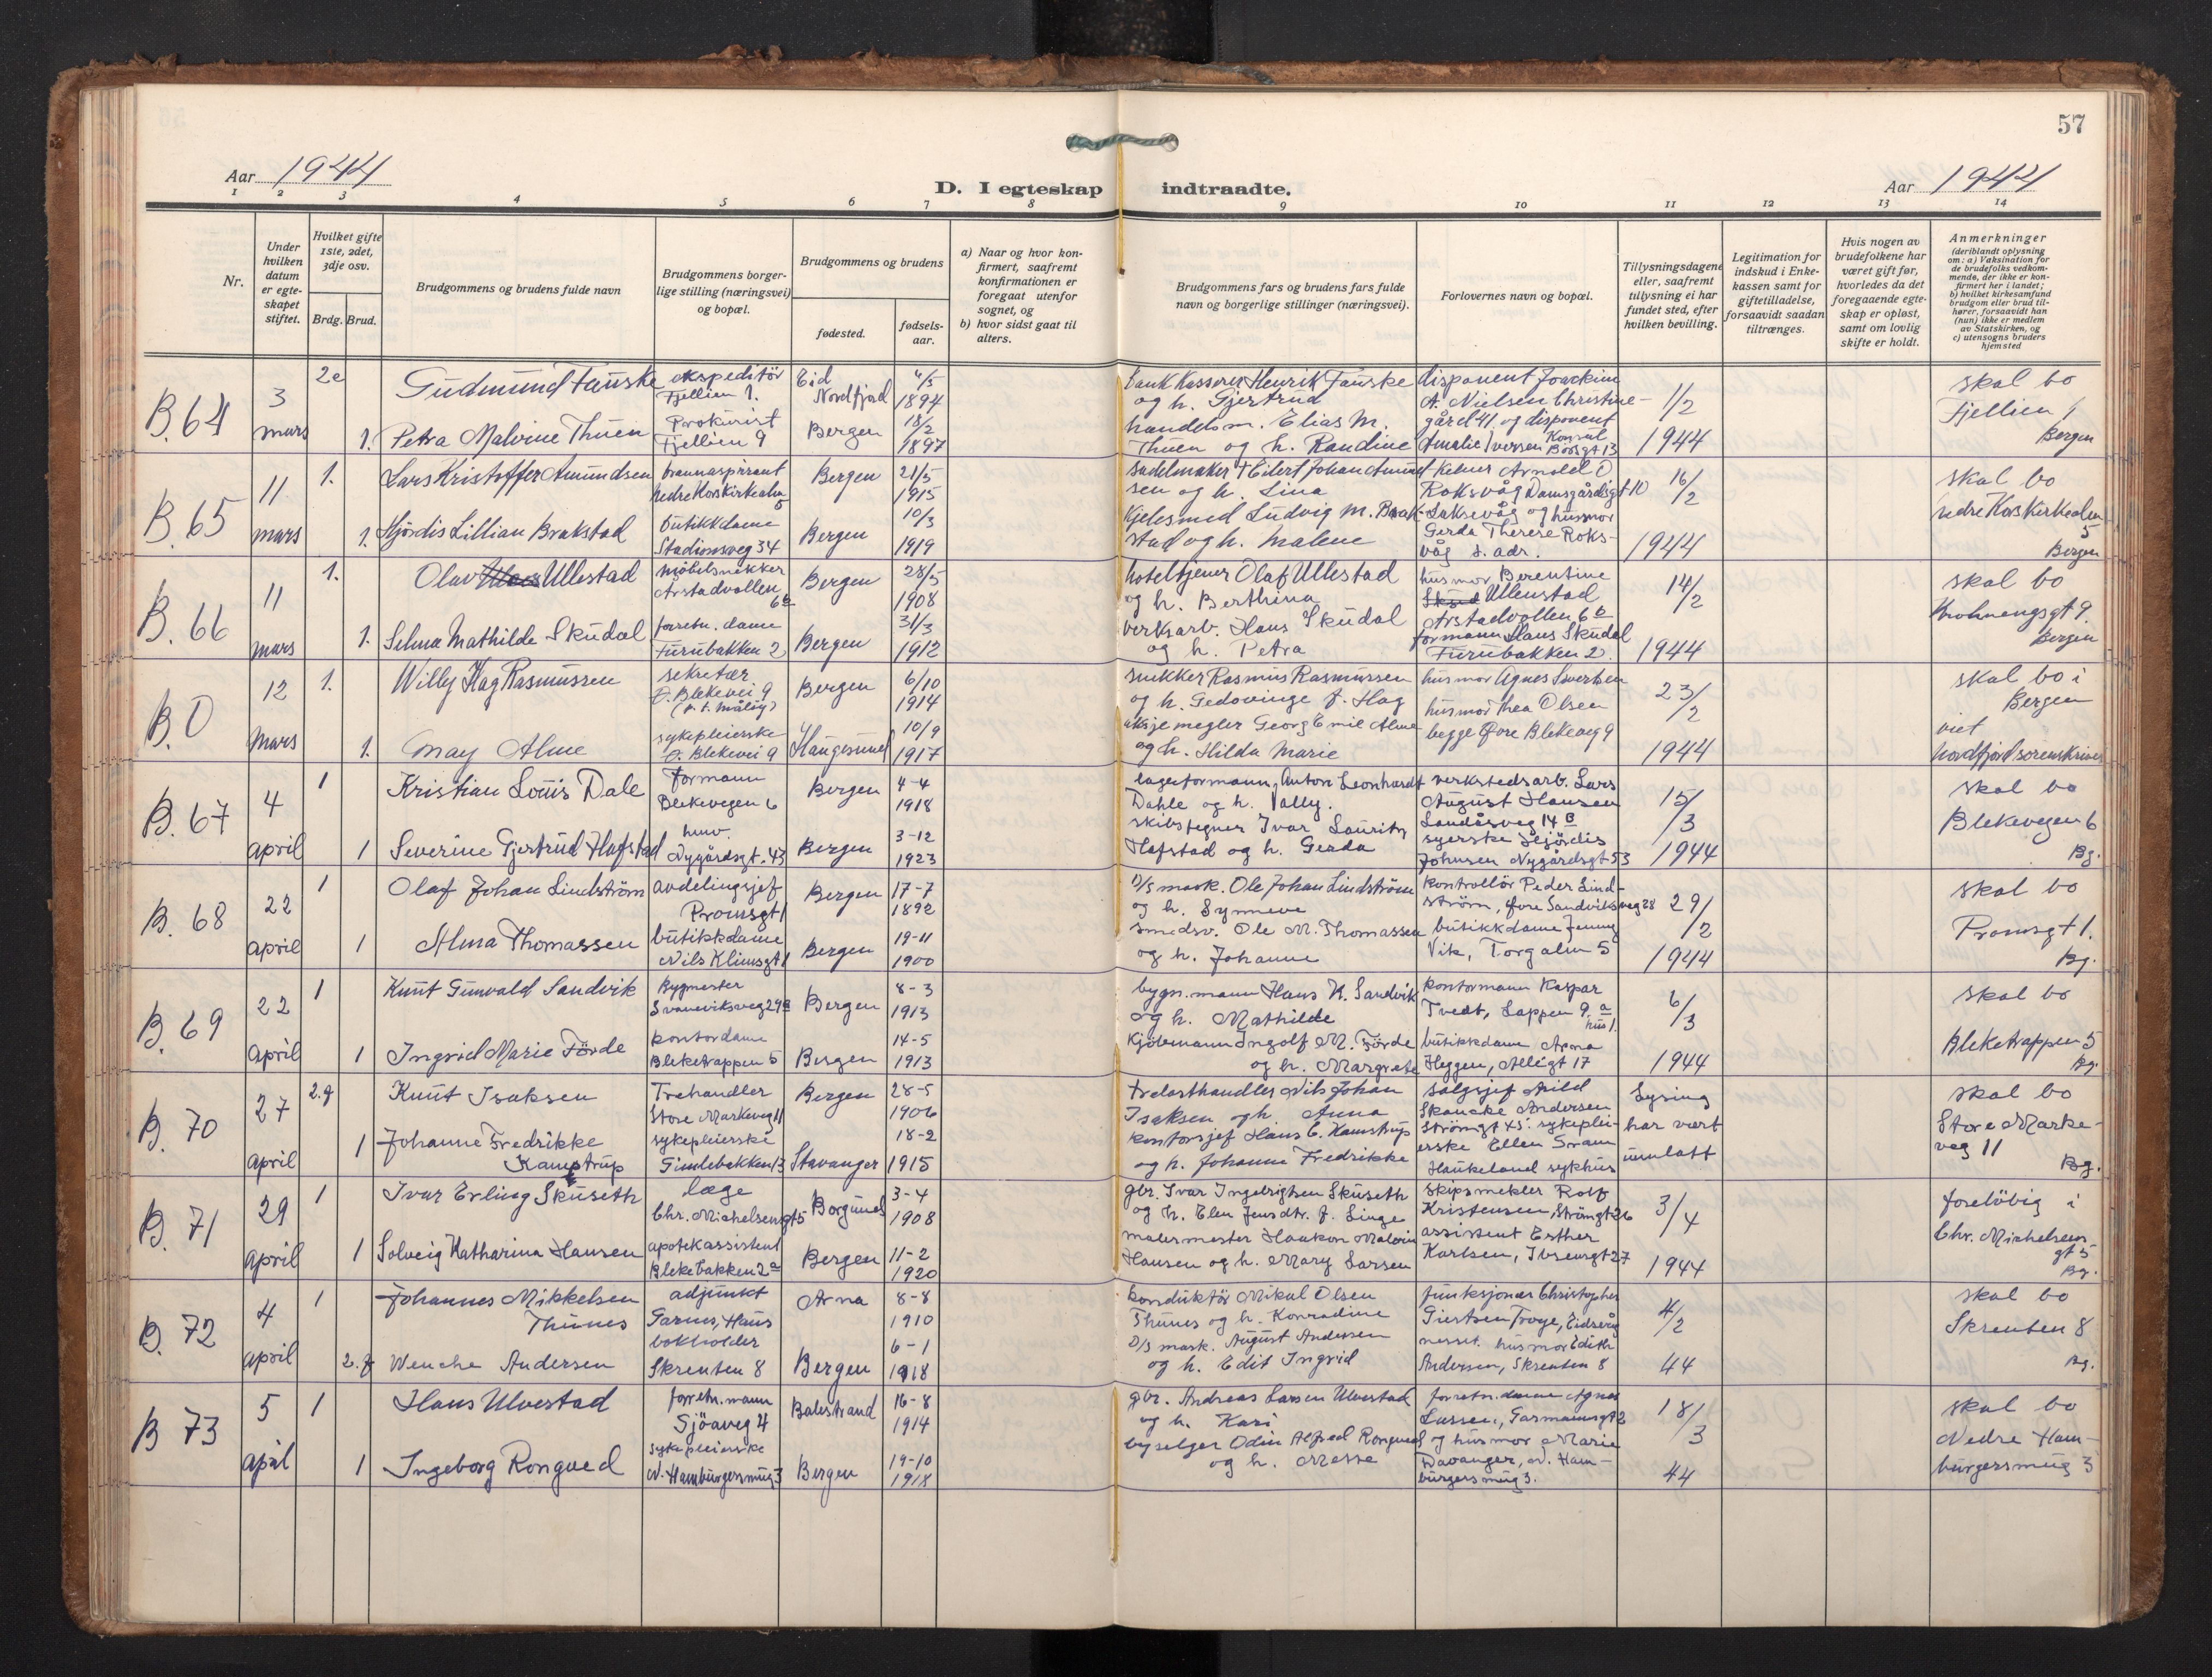 57
Aar 1944
D. I egteskap indtraadte.
Aar 1944
1 2 3 4 5 6 7 8 9 10 11 12 13 14
Nr.
Under hvilken datum er egte-skapet stiftet.
Hvilket gifte 1ste, 2det, 3dje osv.
Brdg. Brud.
Brudgommens og brudens fulde navn
Brudgommens borger-lige stilling (næringsvei) og bopæl.
Brudgommens og brudens
fødested.
fødsels-aar.
a) Naar og hvor kon-firmert, saafremt konfirmationen er foregaat utenfor sognet, og
b) hvor sidst gaat til alters.
Brudgommens fars og brudens fars fulde navn og borgerlige stillinger (næringsvei).
Forlovernes navn og bopæl.
Tillysningsdagene eller, saafremt tillysning ei har fundet sted, efter hvilken bevilling.
Legitimation for indskud i Enke-kassen samt for giftetilladelse, forsaavidt saadan tiltrænges.
Hvis nogen av brudefolkene har været gift før, hvorledes da det foregaaende egte-skap er opløst, samt om lovlig skifte er holdt.
Anmerkninger
(deriblandt oplysning om: a) Vaksination for de brudefolks vedkom-mende, der ikke er kon-firmert her i landet; b) hvilket kirkesamfund brudgom eller brud til-hører, forsaavidt han (hun) ikke er medlem av Statskirken, og c) utensogns bruders hjemsted
B. 64
3 mars
2e
Gudmund Fauske
ekspeditör
Fjellien 1.
Eid Nordfjord
4/5 1894
bank kasserer Henrik Fauske
og h. Gjertrud
disponent Joackim
A. Nielsen Christine-
gård 41 og disponent
1/2
1944
skal bo
Fjellien 1
Bergen
1.
Petra Malvine Thuen
Prokurist
Fjellien 9
Bergen
18/2 1897
handelsm. Elias M.
Thuen og h. Randine
Amalie Iversen Konsul
Börsgt 13
B. 65
11 mars
1.
Lars Kristoffer Amundsen
brannaspirant
nedre Korskirkealm
5
Bergen
21/5 1915
sadelmaker † Eilert Johan Amund-
sen og h. Lina
Kelner Arnold O
Roksvåg Damsgårdsgt 10
Laksevåg og husmor
16/2
1944
skal bo
nedre Korskirkealm
5
Bergen
1.
Hjördis Lillian Brakstad
butikkdame
Stadionsveg 34
Bergen
10/3 1919
Kjelesmed Ludvig M. Brak-
stad og h. Malene
Gerda Therese Roks-
våg s. adr.
B. 66
11 mars
1.
Olav Ullestad
möbelsnekker
Årstadvollen
6b
Bergen
28/5 1908
hoteltjener Olaf Ullestad
og h. Berthina
husmor Berentine
Ullenstad
Årstadvollen 6b
14/2
1944
skal bo
Krohnengsgt 9.
Bergen
1.
Selma Mathilde Skudal
forretn. dame
Furubakken 2
Bergen
31/3 1912
verksarb. Hans Skudal
og h. Petra
formann Hans Skudal
Furubakken 2.
B. 0
12 mars
1.
Willy Hag Rasmussen
sekretær
Ö. Blekevei 9
(p. t. Måløy)
Bergen
6/10 1914
snekker Rasmus Rasmussen
og h. Gedovinge f. Hag
husmor Agnes Sivertsen
husmor Thea Olsen
begge Övre Blekevei 9
23/2
1944
skal bo i
Bergen
viet
Nordfjord sorenskriver
1.
May Alme
sykepleierske
Ö. Blekevei 9
Haugesund
10/9 1917
aksjemegler Georg Emil Alme
og h. Hilda Marie
B. 67
4 april
1
Kristian Louis Dale
formann
Blekevegen 6
Bergen
4-4 1918
lagerformann Anton Leonhardt
Dahle og h. Vally.
verkstedsarb. Lars
August Hansen
Landåsveg 14 B
15/3
1944
skal bo
Blekevegen 6
Bg.
1
Severine Gjertrud Hafstad
husv.
Nygårdsgt. 43
Bergen
3-12 1923
skibstegner Ivar Lauritz
Hafstad og h. Gerda
syerske Hjördis
Johnsen Nygårdsgt 53
B. 68
22 april
1
Olaf Johan Lindström
avdelingsjef
Promsgt 1
Bergen
17-7 1892
D/S mask. Ole Johan Lindström
og h. Synneve
kontrollör Peder Lind-
ström, övre Sandviksveg 28
29/2
1944
skal bo
Promsgt 1.
Bg.
1
Alma Thomassen
butikkdame
Nils Klimsgt 1
Bergen
19-11 1900
smedsv. Ole M. Thomassen
og h. Johanne
butikkdame Jenny
Vik, Torgalm 5
B. 69
22 april
1
Knut Gunvald Sandvik
Bygmester
Svaneviksveg 29B
Bergen
8-3 1913
bygn.mann Hans K. Sandvik
og h. Mathilde
kontormann Kaspar
Tvedt, Lappen 9.a
hus 1.
6/3
1944
skal bo
Bleketrappen 5
Bg.
1
Ingrid Marie Förde
kontordame
Bleketrappen 5
Bergen
14-5 1913
Kjöbmann Ingolf M. Förde
og h. Margrete
butikkdame Arna
Heggen, Allégt 17
B. 70
27 april
2.g
Knut Isaksen
Trehandler
Store Markeveg 11
Bergen
28-5 1906
trelasthandler Nils Johan
Isaksen og h. Anna
salgsjef Arild
Skancke Andersen
Strömgt 45. sykeplei-
Lysing
har vært
unnlatt
skal bo
Store Marke-
veg 11
Bg.
1
Johanne Fredrikke
Kamstrup
sykepleierske
Gimlebakken 13
Stavanger
18-2 1915
kontorsjef Hans C. Kamstrup
og h. Johanne Fredrikke
erske Ellen Sram
Haukeland sykhus
B. 71
29 april
1
Ivar Erling Skuseth
læge
Chr. Michelsensgt 5
Borgund
3-4 1908
gbr. Ivar Ingebrigtsen Skuseth
og h. Elen Jensdtr. f. Linge
skipsmekler Rolf
Kristensen, Strömgt 26
3/4
1944
foreløbig i
Chr. Michelsens-
gt 5
Bg.
1
Solveig Katharina Hansen
apotekassistent
Blekebakken 2a
Bergen
11-2 1920
malermester Haakon Malvin
Hansen og h. Mary Larsen
assistent Esther
Karlsen, Ibsensgt 27
B. 72
4 april
1
Johannes Mikkelsen
Thunes
adjunkt
Garnes, Haus
Arna
8-8 1910
konduktör Mikal Olsen
Thunes og h. Konradine
funksjonær Christopher
Giertsen Troye, Eidsvåg
nesset. husmor Edith
4/2
44
skal bo
Skrenten 8
Bg.
2.g
Wenche Andersen
bokholder
Skrenten 8
Bergen
6-1 1918
D/S mask. August Andersen
og h. Edit Ingrid
Andersen, Skrenten 8
B 73
5 april
1
Hans Ulvestad
forretn.mann
Sjöaveg 4
Balestrand
16-8 1914
gbr. Andreas Larsen Ulvestad
og h. Kari
forretn.dame Agnes
Lassen, Garmannsgt 2
18/3
44
skal bo
Nedre Ham-
burgersmug 3
1
Ingeborg Rongved
sykepleierske
N. Hamburgersmug 3
Bergen
19-10 1918
byselger Odin Alfred Rongved
og h. Messe
og husmor Marie
Davanger, N. Ham-
burgersmug 3.